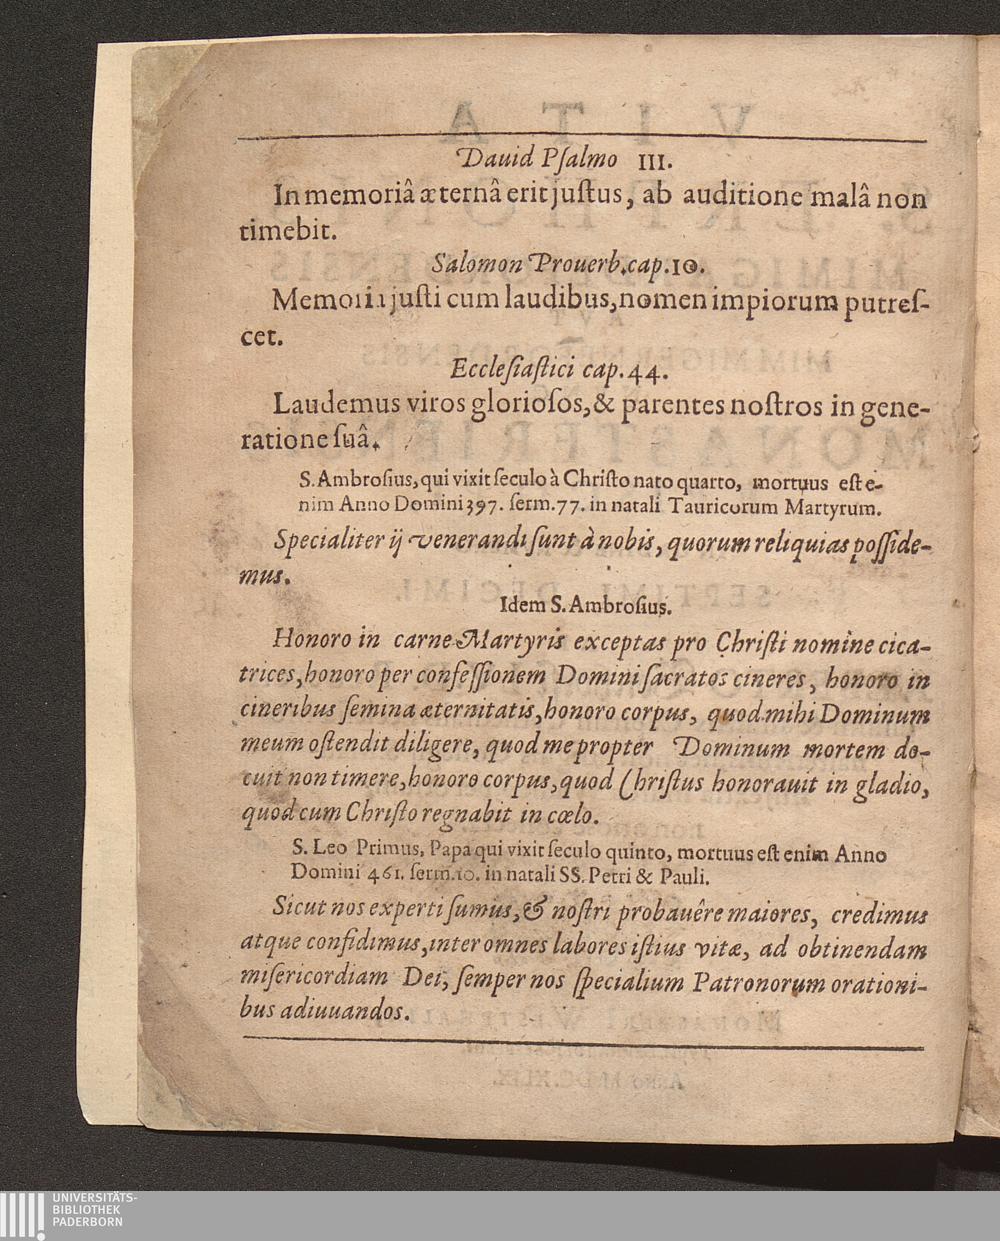 Dauid Pſalmo III.
In memoriâ æternâ erit juſtus, ab auditione malâ non
timebit.
Salomon Prouerb. cap. 10.
Memoria juſti cum laudibus, nomen impiorum putreſ-
cet.
Eccleſiaſtici cap. 44.
Laudemus viros glorioſos, & parentes noſtros in gene-
ratione ſuâ.
S. Ambroſius, qui vixit ſeculo à Chriſto nato quarto, mortuus eſt e-
nim Anno Domini 397. ſerm. 77. in natali Tauricorum Martyrum.
Specialiter ij venerandi ſunt à nobis, quorum reliquias poſſide-
mus.
Idem S. Ambroſius.
Honoro in carne Martyris exceptas pro Chriſti nomine cica-
trices, honoro per confeſſionem Domini ſacratos cineres, honoro in
cineribus ſemina æternitatis, honoro corpus, quod mihi Dominum
meum oſtendit diligere, quod me propter Dominum mortem do-
cuit non timere, honoro corpus, quod Chriſtus honorauit in gladio,
quod cum Chriſto regnabit in cœlo.
S. Leo Primus, Papa qui vixit ſeculo quinto, mortuus eſt enim Anno
Domini 461. ſerm. 10. in natali SS. Petri & Pauli.
Sicut nos experti ſumus, & noſtri probauêre maiores, credimus
atque confidimus, inter omnes labores iſtius vitæ, ad obtinendam
miſericordiam Dei, ſemper nos ſpecialium Patronorum orationi-
bus adiuuandos.
UNIVERSITÄTS-
BIBLIOTHEK
PADERBORN